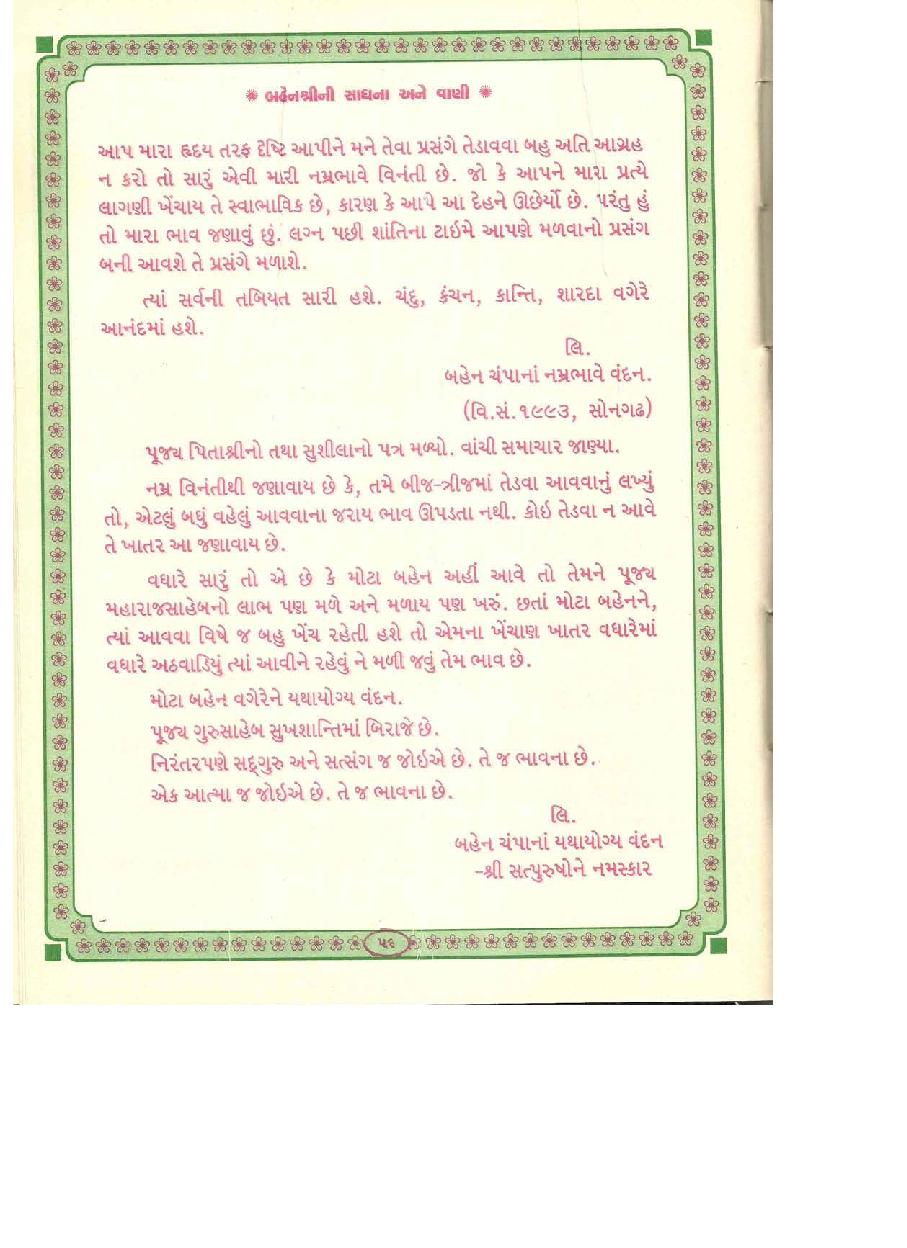 ✺ બહેનશ્રીની સાધના અને વાણી ✺
આપ મારા હૃદય તરફ દૃષ્ટિ આપીને મને તેવા પ્રસંગે તેડાવવા બહુ અતિ આગ્રહ
ન કરો તો સારું એવી મારી નમ્રભાવે વિનંતી છે. જો કે આપને મારા પ્રત્યે
લાગણી ખેંચાય તે સ્વાભાવિક છે, કારણ કે આપે આ દેહને ઊછેર્યો છે. પરંતુ હું
તો મારા ભાવ જણાવું છું. લગ્ન પછી શાંતિના ટાઇમે આપણે મળવાનો પ્રસંગ
બની આવશે તે પ્રસંગે મળાશે.
ત્યાં સર્વની તબિયત સારી હશે. ચંદુ, કંચન, કાન્તિ, શારદા વગેરે
આનંદમાં હશે.
લિ.
બહેન ચંપાનાં નમ્રભાવે વંદન.
(વિ.સં.૧૯૯૩, સોનગઢ)
પૂજ્ય પિતાશ્રીનો તથા સુશીલાનો પત્ર મળ્યો. વાંચી સમાચાર જાણ્યા.
નમ્ર વિનંતીથી જણાવાય છે કે, તમે બીજ-ત્રીજમાં તેડવા આવવાનું લખ્યું
તો, એટલું બધું વહેલું આવવાના જરાય ભાવ ઊપડતા નથી. કોઇ તેડવા ન આવે
તે ખાતર આ જણાવાય છે.
વધારે સારું તો એ છે કે મોટા બહેન અહીં આવે તો તેમને પૂજ્ય
મહારાજસાહેબનો લાભ પણ મળે અને મળાય પણ ખરું. છતાં મોટા બહેનને,
ત્યાં આવવા વિષે જ બહુ ખેંચ રહેતી હશે તો એમના ખેંચાણ ખાતર વધારેમાં
વધારે અઠવાડિયું ત્યાં આવીને રહેવું ને મળી જવું તેમ ભાવ છે.
મોટા બહેન વગેરેને યથાયોગ્ય વંદન.
પૂજ્ય ગુરુસાહેબ સુખશાન્તિમાં બિરાજે છે.
નિરંતરપણે સદ્ગુરુ અને સત્સંગ જ જોઇએ છે. તે જ ભાવના છે.
એક આત્મા જ જોઇએ છે. તે જ ભાવના છે.
લિ.
બહેન ચંપાનાં યથાયોગ્ય વંદન
-શ્રી સત્પુરુષોને નમસ્કાર
૫૬